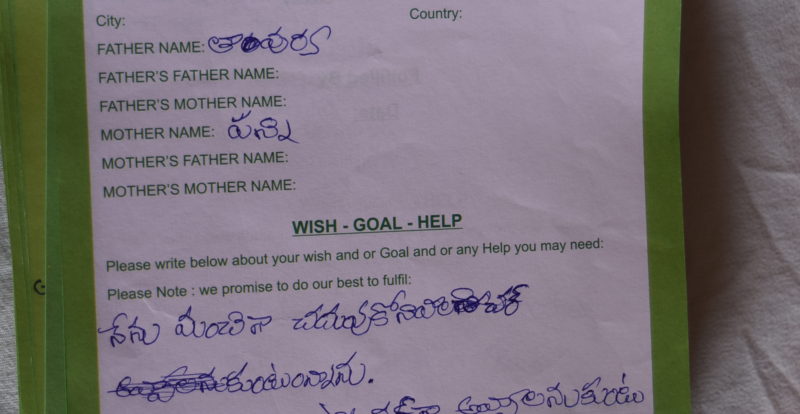 City: Country:
FATHER NAME:
FATHER'S FATHER NAME:
FATHER'S MOTHER NAME:
MOTHER NAME:
MOTHER'S FATHER NAME:
MOTHER'S MOTHER NAME:
WISH - GOAL - HELP
Please write below about your wish and or Goal and or any Help you may need:
Please Note : we promise to do our best to fulfil:
నేను మంచిగా
అవ్వాలనుకుంటు